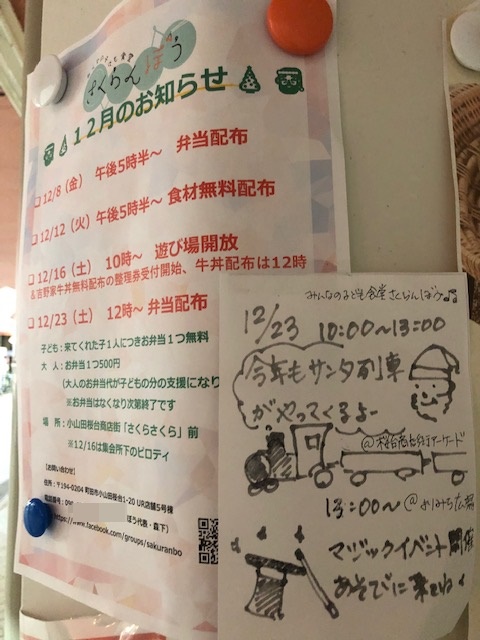 さくらんぼう
12月のお知らせ
□ 12/8（金） 午後5時半〜 弁当配布
□ 12/12（火） 午後5時半〜 食材無料配布
□ 12/16（土） 10時〜 遊び場開放
&吉野家牛丼無料配布の整理券受付開始、牛丼配布は12時
□ 12/23（土） 12時〜 弁当配布
子ども：来てくれた子1人につきお弁当1つ無料
大 人：お弁当1つ500円
（大人のお弁当代が子どもの分の支援になり
※お弁当はなくなり次第終了です
場 所：小山田桜台商店街「さくらさくら」前
※12/16は集会所下のピロティ
【お問い合わせ】
住所：〒194-0204 町田市小山田桜台1-20 UR店舗5号棟
電話番号：
ぼう代表・森下）
https://www.facebook.com/groups/sakuranbo
みんなの子ども食堂さくらんぼう
12/23 10:00〜13:00
今年もサンタ列車
がやってくるよー
@桜台商店街アーケード
13:00〜 @ 広場
マジックイベント開催
あそびに来てね